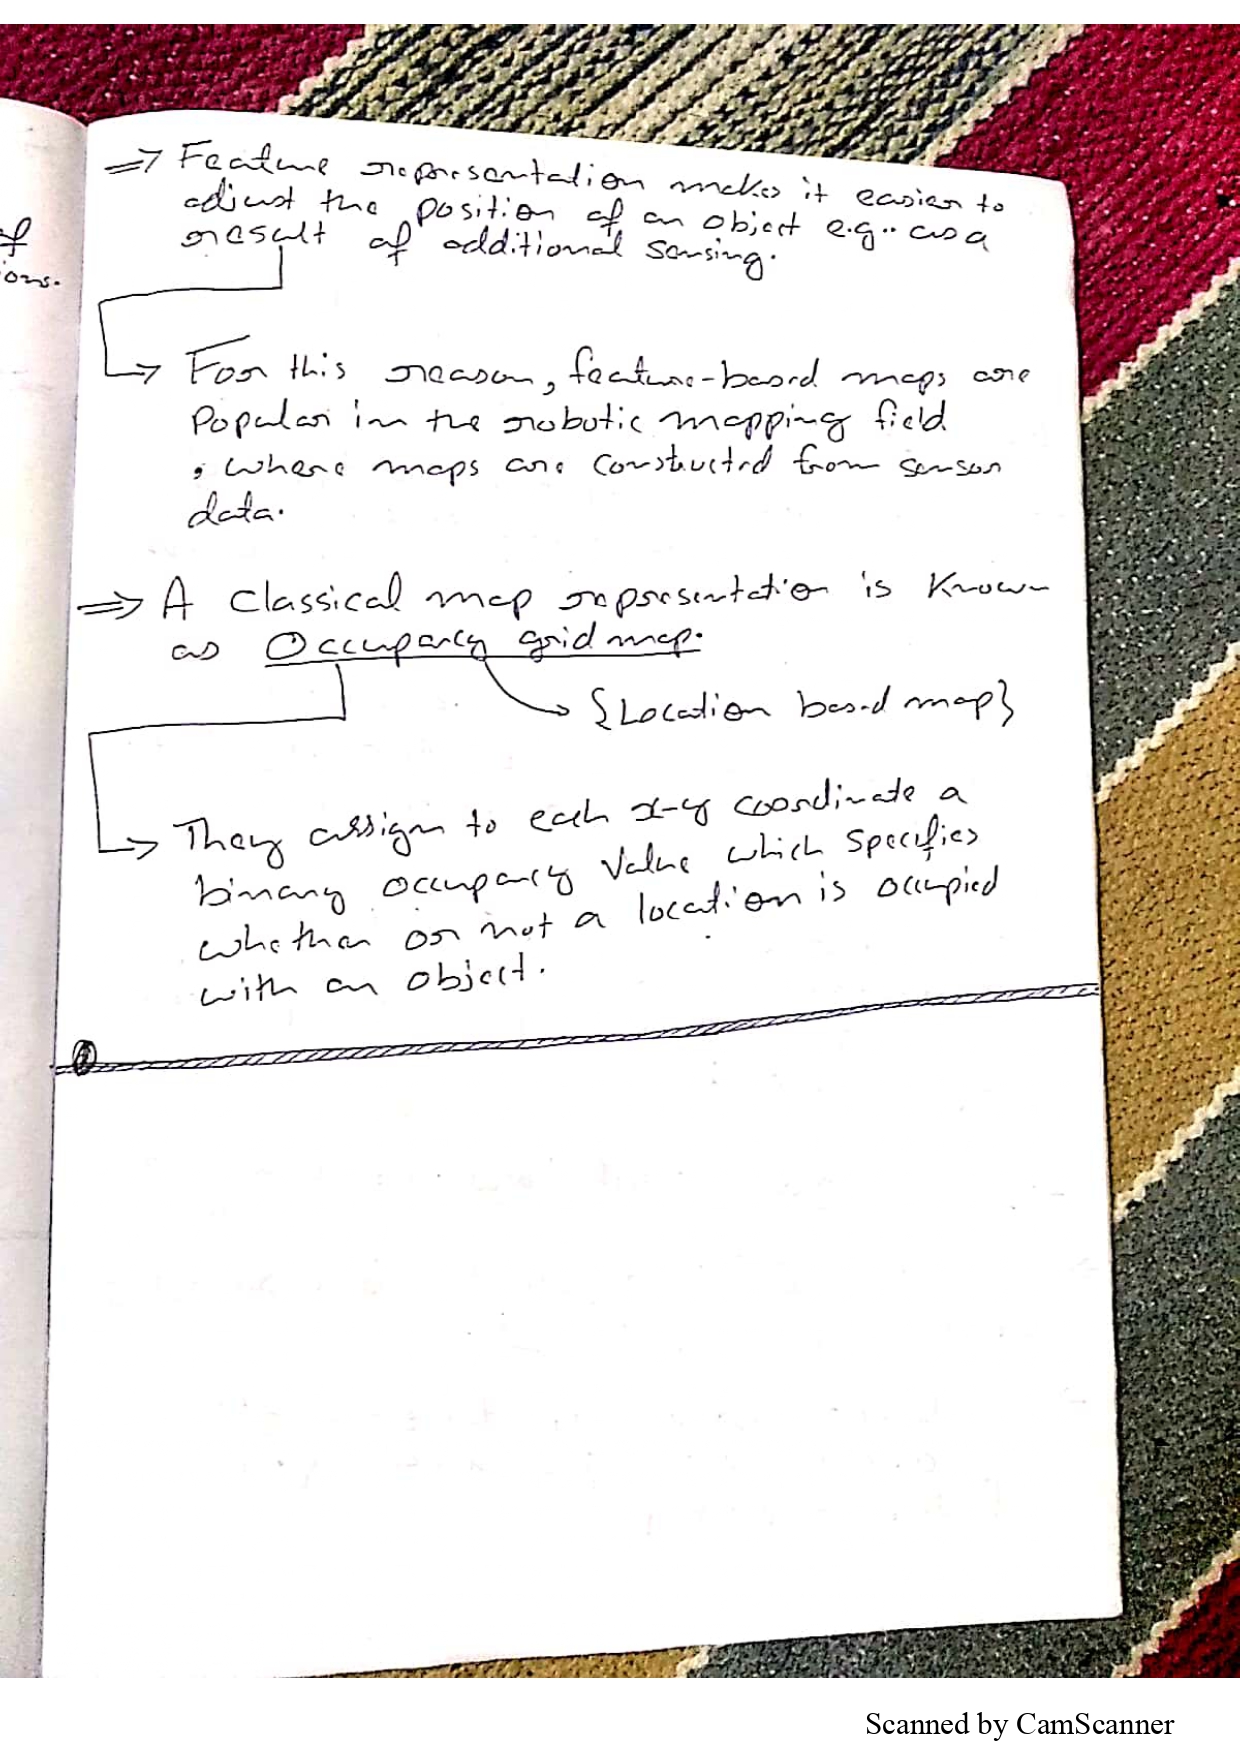 ⇒ Feature representation makes it easier to
adjust the position of an object e.g.. as a
result of additional sensing.
→ For this reason, feature-based maps are
Popular in the robotic mapping field
, where maps are constructed from sensor
data.
⇒ A classical map representation is known
as Occupancy grid map.
→ {Location based map}
→ They assign to each x-y coordinate a
binary occupancy value which specifies
whether or not a location is occupied
with an object.
of
ions.
Scanned by CamScanner